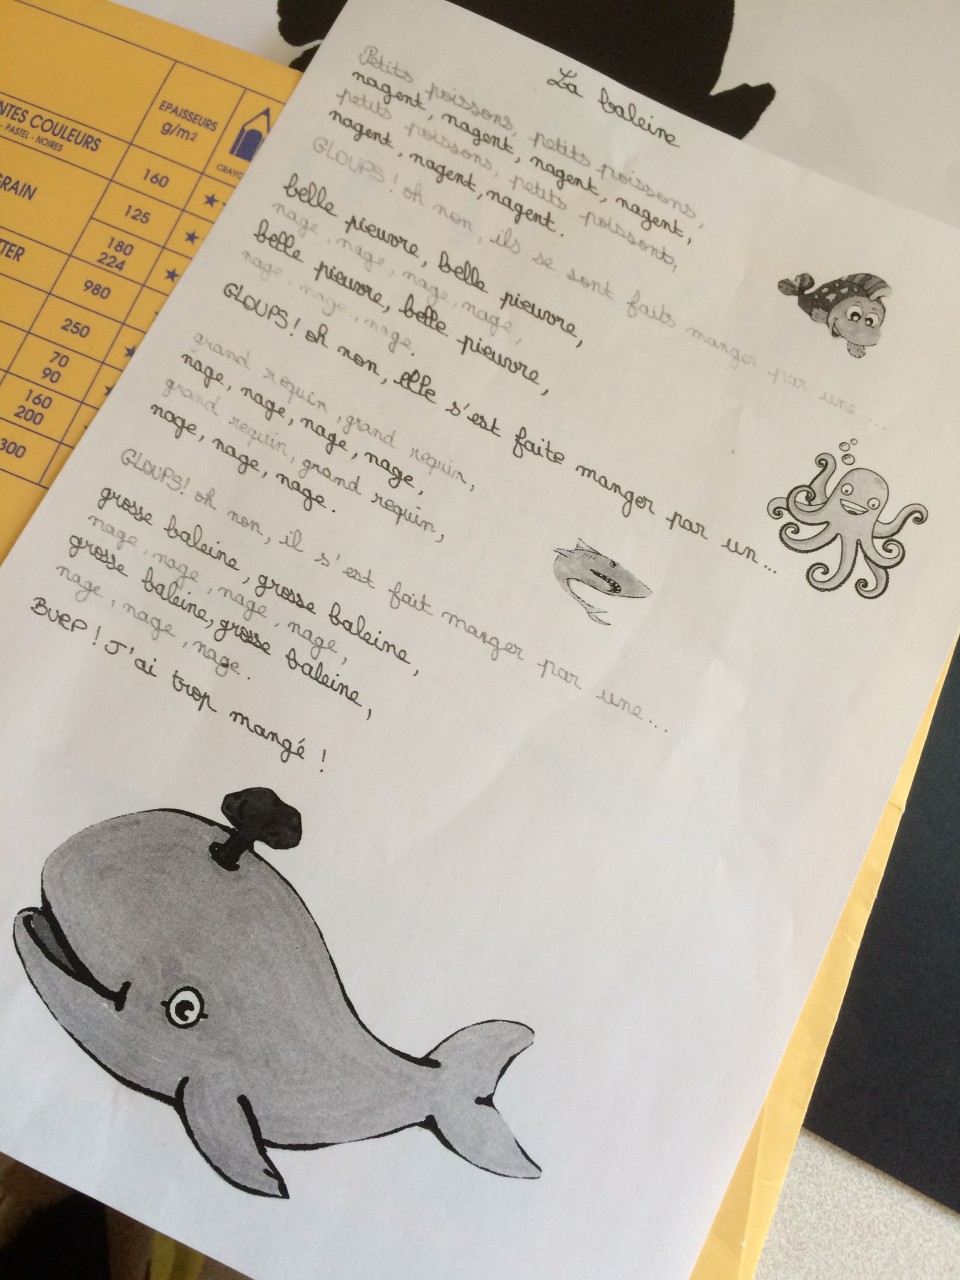 La baleine
Petits poissons, petits poissons,
nagent, nagent, nagent, nagent,
petits poissons, petits poissons,
nagent, nagent, nagent.
GLOUPS! oh non, ils se sont faits manger par une...
belle pieuvre, belle pieuvre,
nage, nage, nage, nage,
belle pieuvre, belle pieuvre,
nage, nage, nage.
GLOUPS! oh non, elle s'est faite manger par un...
grand requin, grand requin,
nage, nage, nage, nage,
grand requin, grand requin,
nage, nage, nage.
GLOUPS! oh non, il s'est fait manger par une...
grosse baleine, grosse baleine,
nage, nage, nage, nage,
grosse baleine, grosse baleine,
nage, nage, nage.
BURP! J'ai trop mangé!
NTES COULEURS
- PASTEL - NOIRES
EPAISSEURS
g/m2
CRAYO
RAIN
160
125
TTER
180
224
980
250
70
90
160
200
300